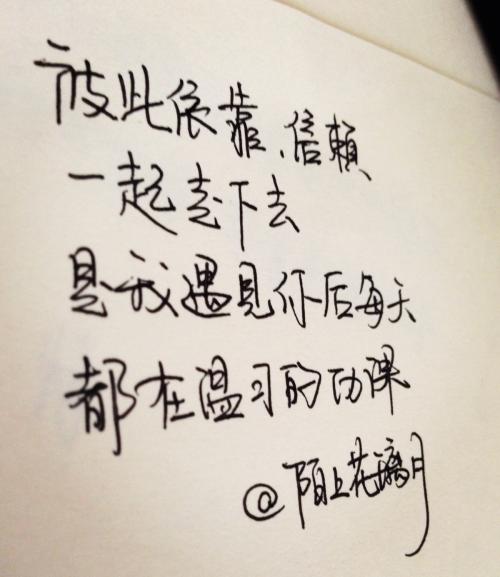 彼此依靠、信賴
一起走下去
是我遇見你后每天
都在温习的功课
@陌上花璃月